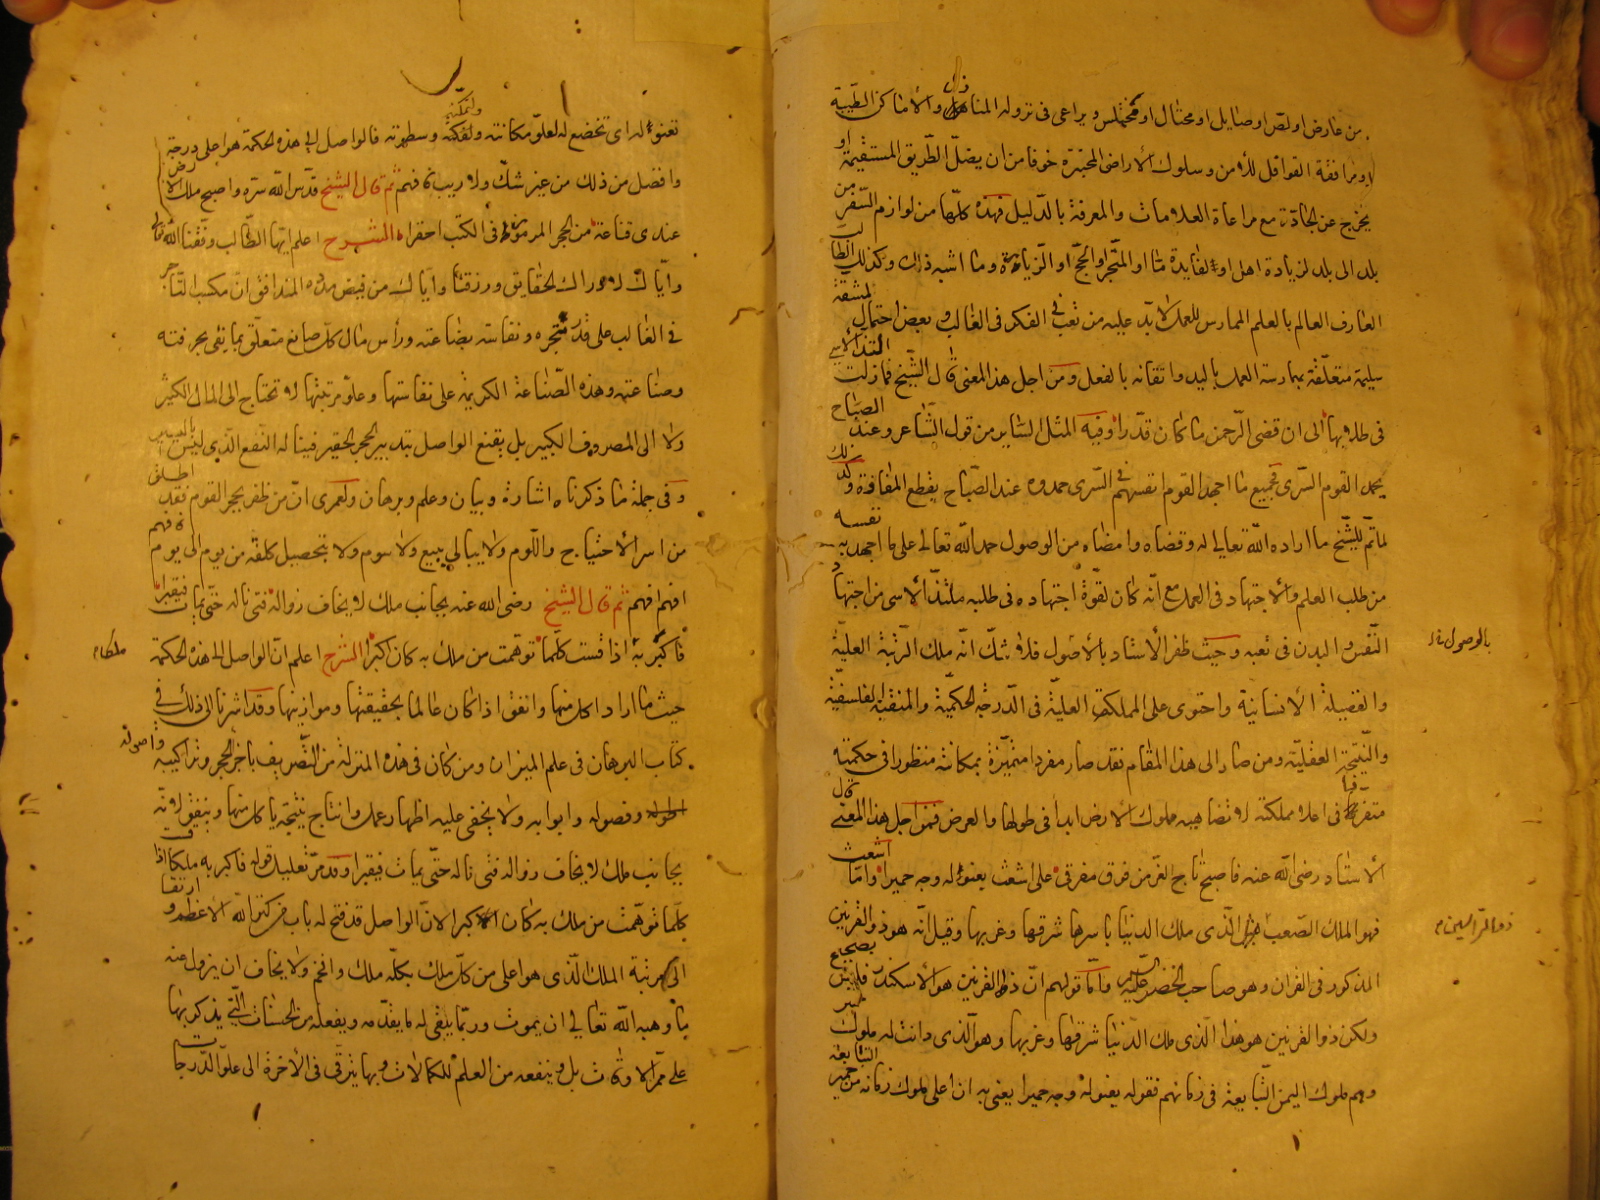 من عارض او لص او صايل او محتال او مختلس ويراعى فى نزوله المناهل والأماكن الطيبة
ومرافقة القوافل للأمن وسلوك الأراضى المخبرة خوفا من ان يضلّ الطّريق المستقيمة او
يخرج عن الجادّة مع مراعاة العلامات والمعرفة بالدّليل فهذه كلّها من لوازم السّفر من
بلد الى بلد لزيادة اهل او لفايدة ما او المتجر او الحجّ او الزيارة وما اشبه ذلك وكذلك الطالب
العارف العالم بالعلم الممارس للعمل لا بدّ عليه من تعب فى الفكر فى الغالب وبعض احتمال لمشقة
متعلّقة بممارسة العمل باليد واتقانه بالفعل ومن اجل هذا المعنى قال الشّيخ فما زلت
فى طلابيها الى ان قضى الرّحمن ما كان قدّرا وفيه المثل السّاير من قول الشّاعر وعند الصباح
يحمد القوم السّرى فجميع ما اجهد القوم انفسهم فى السّرى حمدوه عند الصّباح بقطع المفازة وكذلك
لمّا تمّ للشّيخ ما اراده اللّه تعالى له وقضاه وامضاه من الوصول حمد اللّه تعالى على ما اجهد به نفسه
من طلب العلم والاجتهاد فى العمل مع انّه كان لقوّة اجتهاده فى طلبه ملتذّا لا سى من اجتهاد
النّفس والبدن فى تعبه وحيث ظفر الأستاد بالأصول فلا شكّ انّه ملك الرّتبة العليّة
بالوصول
والفضيلة الأنسانية واحتوى على المملكة العليّة فى الدّرجة الحكميّة والمنقبة الفلسفيّة
والنّتيجة العقليّة ومن صار الى هذا المقام فقد صار مفردا متميّزة بمكانته منظورا فى حكمته
متفرقا فى اعلا مملكته لا تضاهيه ملوك الأرض ابدا فى طولها والعرض فمن اجل هذا المعنى قال
الأستاد رضى اللّه عنه فاصبح تاج العزّ من فوق مفرقى على اشعث يعنو له وجه حميرا وامّا اشعث
فهو الملك الصّعب الّذى ملك الدنيا باسرها شرقها وغربها وقيل انّه هو ذو القرنين
ذو القرنين
المذكور فى القرآن وهو صاحب الخضر عليه السّلام وامّا قولهم انّ ذا القرنين هو الأسكندر فليس بصحيح
ولكن ذو القرنين هو هذا الّذى ملك الدّنيا شرقها وغربها وهو الّذى دانت له ملوك حمير
وهم ملوك اليمن التّبابعة فى زمانهم فقوله يعنو له وجه حميرا يعنى به ان اعلى ملوك زمانه من حمير التبابعة
تعنو له اى تخضع له لعلوّ مكانته ولتمكّنه وسطوته فالواصل الى هذه الحكمة هو اعلى درجة
وافضل من ذلك من غير شكّ ولا ريب فافهم ثم قال الشيخ قدّس اللّه سرّه واصبح ملك الارض
عندى قناعة من الحجر المرموز فى الكتب احقرا الشرح اعلم ايّها الطّالب وفّقنا اللّه
وايّاك لادراك الحقايق ورزقنا وايّاك من فيض مدده المندافق انّ مكسب التّاجر
فى الغالب على قدر متجره ونفاسة بضاعته ورأس مال كلّ صانع متعلّق بما يفى بحرفته
وصناعته وهذه الصّناعة الكريمة على نفاستها وعلوّ مرتبتها لا تحتاج الى المال الكثير
ولا الى المصروف الكبير بل يقنع الواصل بتدبير الحجر الحقير فيناله النّفع الّذى ليس باليسير
وفى جملة ما ذكرناه اشارة وبيان وعلم وبرهان ولعمرى انّ من ظفر بحجر القوم فقد اطلق
من اسر الأحتياج واللّوم ولا يبالى ببيع ولا سوم ولا بتحصيل كلفة من يوم الى يوم فافهم
افهم افهم ثم قال الشيخ رضى اللّه عنه بجانب ملك لا يخاف زواله فتى ناله حتّى يمات فيقبرا
فاكبر به اذا قست كلّما توهّمت من ملك به كان اكبرا الشرح اعلم انّ الواصل الى هذه الحكمة
ملكا
حيث ما اراد اكل منها وانفق اذا كان عالما بحقيقتها وموازينها وقد اشرنا الى ذلك فى
كتاب البرهان فى علم الميزان ومن كان فى هذه المنزلة من التّصريف باجزاء الحجر وتراكيبه واصوله
وفصوله وابوابه ولا يخفى عليه اظهار عمل وانتاج نتيجة ياكل منها وينفق لانّه
بجانب ملك لا يخاف زواله فتى ناله حتّى يمات فيقبرا وقد مرّ تعليل قوله فاكبر به ملكا اذا
كلّما توهّمت من ملك به كان اكبرا لانّ الواصل قد فتح له باب من كنز اللّه الأعظم وارتقا
الى مرتبة الملك الّذى هو اعلى من كلّ ملك بكلّه ملك وافخم ولا يخاف ان يزول عنه
ما وهبه اللّه تعالى الى ان يموت وربّما يبقى له ما يقدّمه ويفعله من الحسنات الّتى يذكر بها
على ممرّ الاوقات بل وينفعه من العلم للكمالات وبها يترقّى فى الآخرة الى علوّ الدّرجات